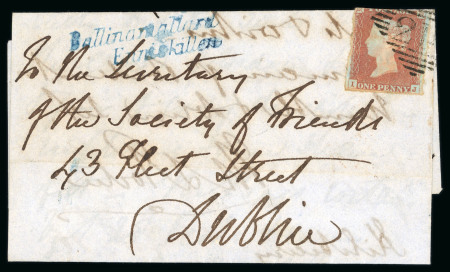 Ballinamallard
Enniskillen
To the Secretary
of the Society of Friends
43 Fleet Street
Dublin
ONE PENNY